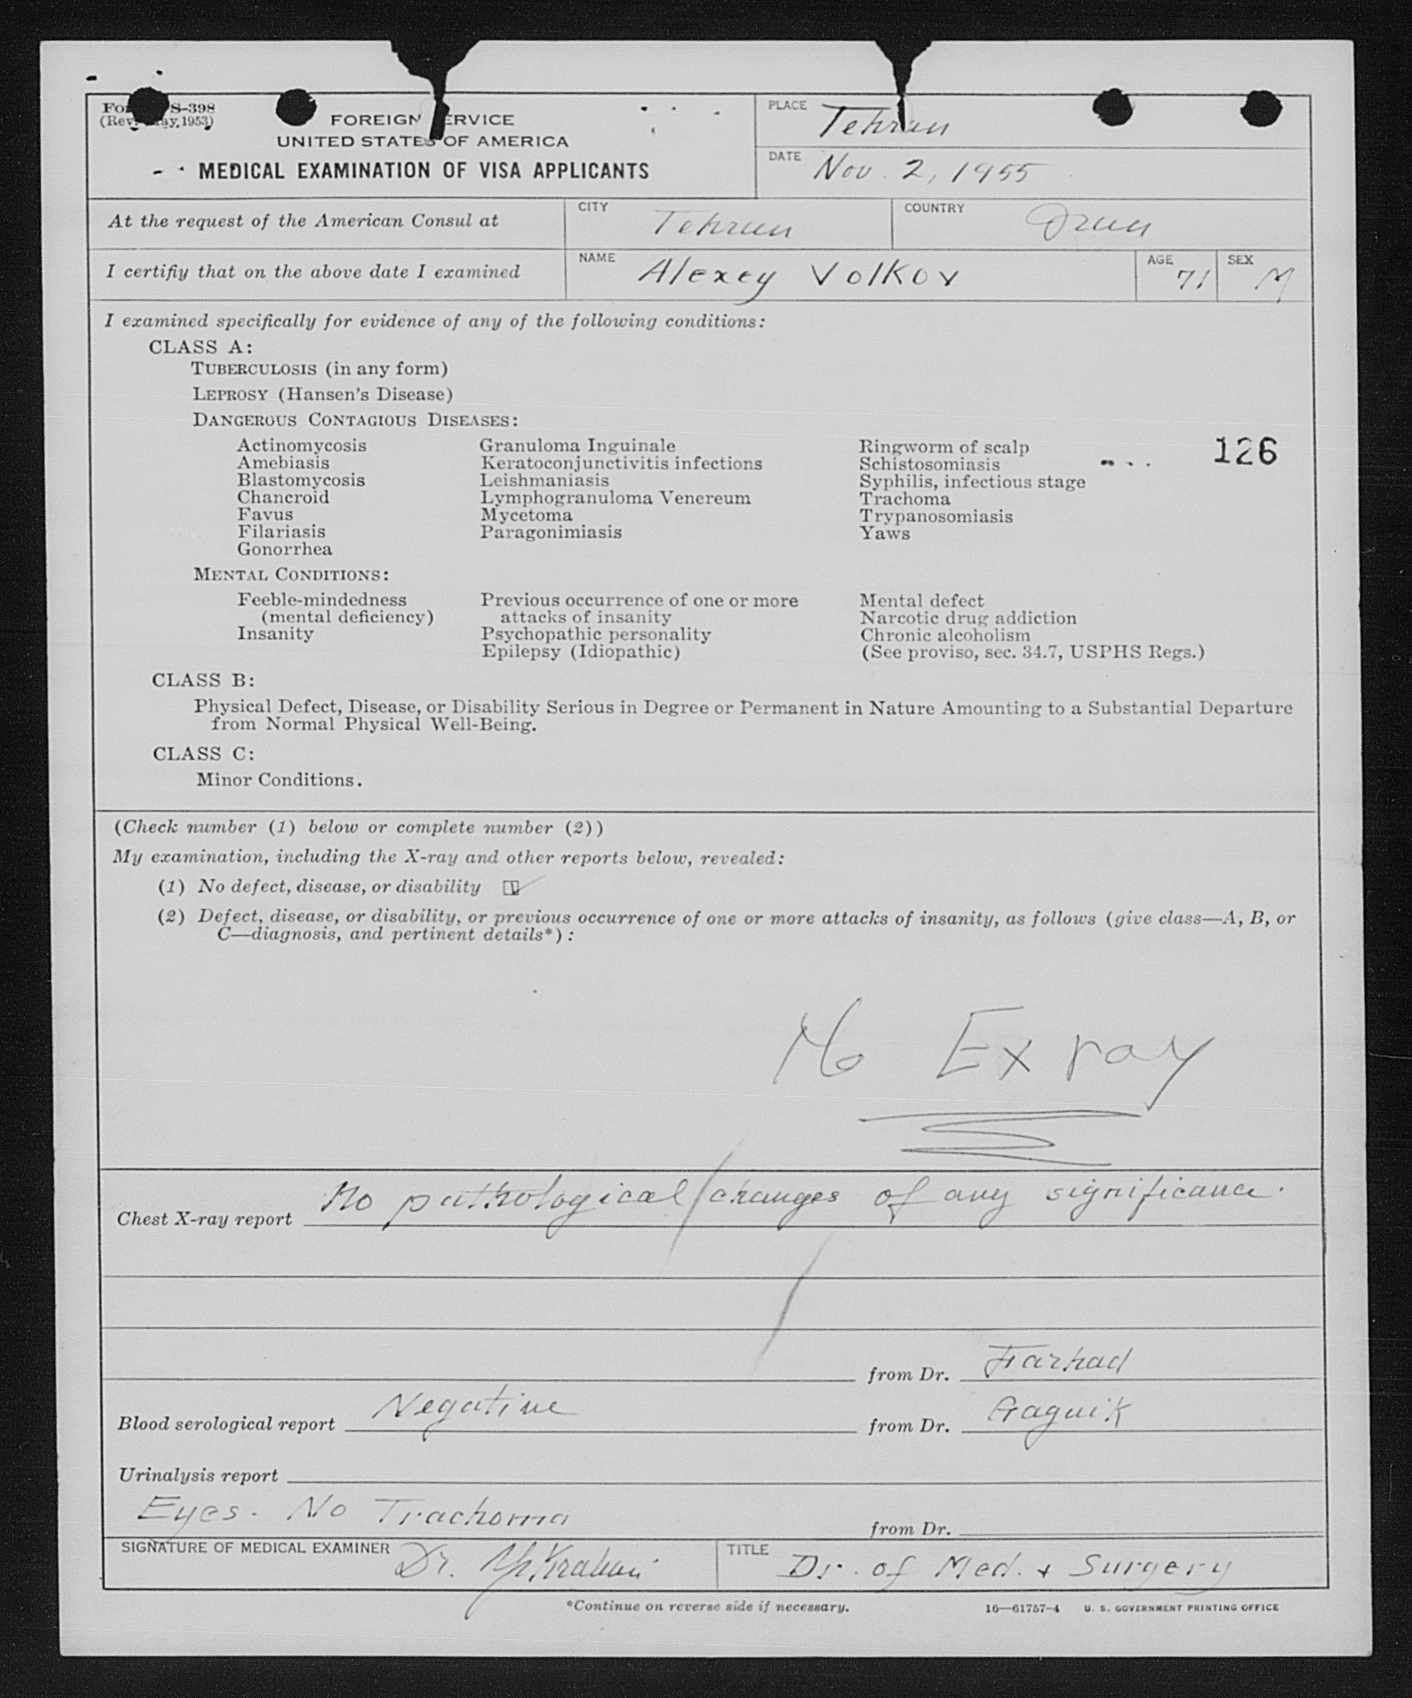 FOREIGN SERVICE
UNITED STATES OF AMERICA
MEDICAL EXAMINATION OF VISA APPLICANTS
S-398
1953)
PLACE Tehran
DATE Nov. 2, 1955
At the request of the American Consul at CITY Tehran COUNTRY Iran
I certifiy that on the above date I examined NAME Alexey Volkov AGE 71 SEX M
I examined specifically for evidence of any of the following conditions:
CLASS A:
TUBERCULOSIS (in any form)
LEPROSY (Hansen's Disease)
DANGEROUS CONTAGIOUS DISEASES:
Actinomycosis Granuloma Inguinale Ringworm of scalp
126
Amebiasis Keratoconjunctivitis infections Schistosomiasis
Blastomycosis Leishmaniasis Syphilis, infectious stage
Chancroid Lymphogranuloma Venereum Trachoma
Favus Mycetoma Trypanosomiasis
Filariasis Paragonimiasis Yaws
Gonorrhea
MENTAL CONDITIONS:
Feeble-mindedness Previous occurrence of one or more Mental defect
(mental deficiency) attacks of insanity Narcotic drug addiction
Insanity Psychopathic personality Chronic alcoholism
Epilepsy (Idiopathic) (See proviso, sec. 34.7, USPHS Regs.)
CLASS B:
Physical Defect, Disease, or Disability Serious in Degree or Permanent in Nature Amounting to a Substantial Departure
from Normal Physical Well-Being.
CLASS C:
Minor Conditions.
(Check number (1) below or complete number (2))
My examination, including the X-ray and other reports below, revealed:
(1) No defect, disease, or disability
(2) Defect, disease, or disability, or previous occurrence of one or more attacks of insanity, as follows (give class—A, B, or
C—diagnosis, and pertinent details*):
No Exray
Chest X-ray report No pathological changes of any significance.
from Dr. Farhad
Blood serological report Negative from Dr. Gaguik
Urinalysis report
Eyes. No Trachoma
from Dr.
SIGNATURE OF MEDICAL EXAMINER Dr.
TITLE Dr. of Med. + Surgery
*Continue on reverse side if necessary.
16—61757-4 U. S. GOVERNMENT PRINTING OFFICE